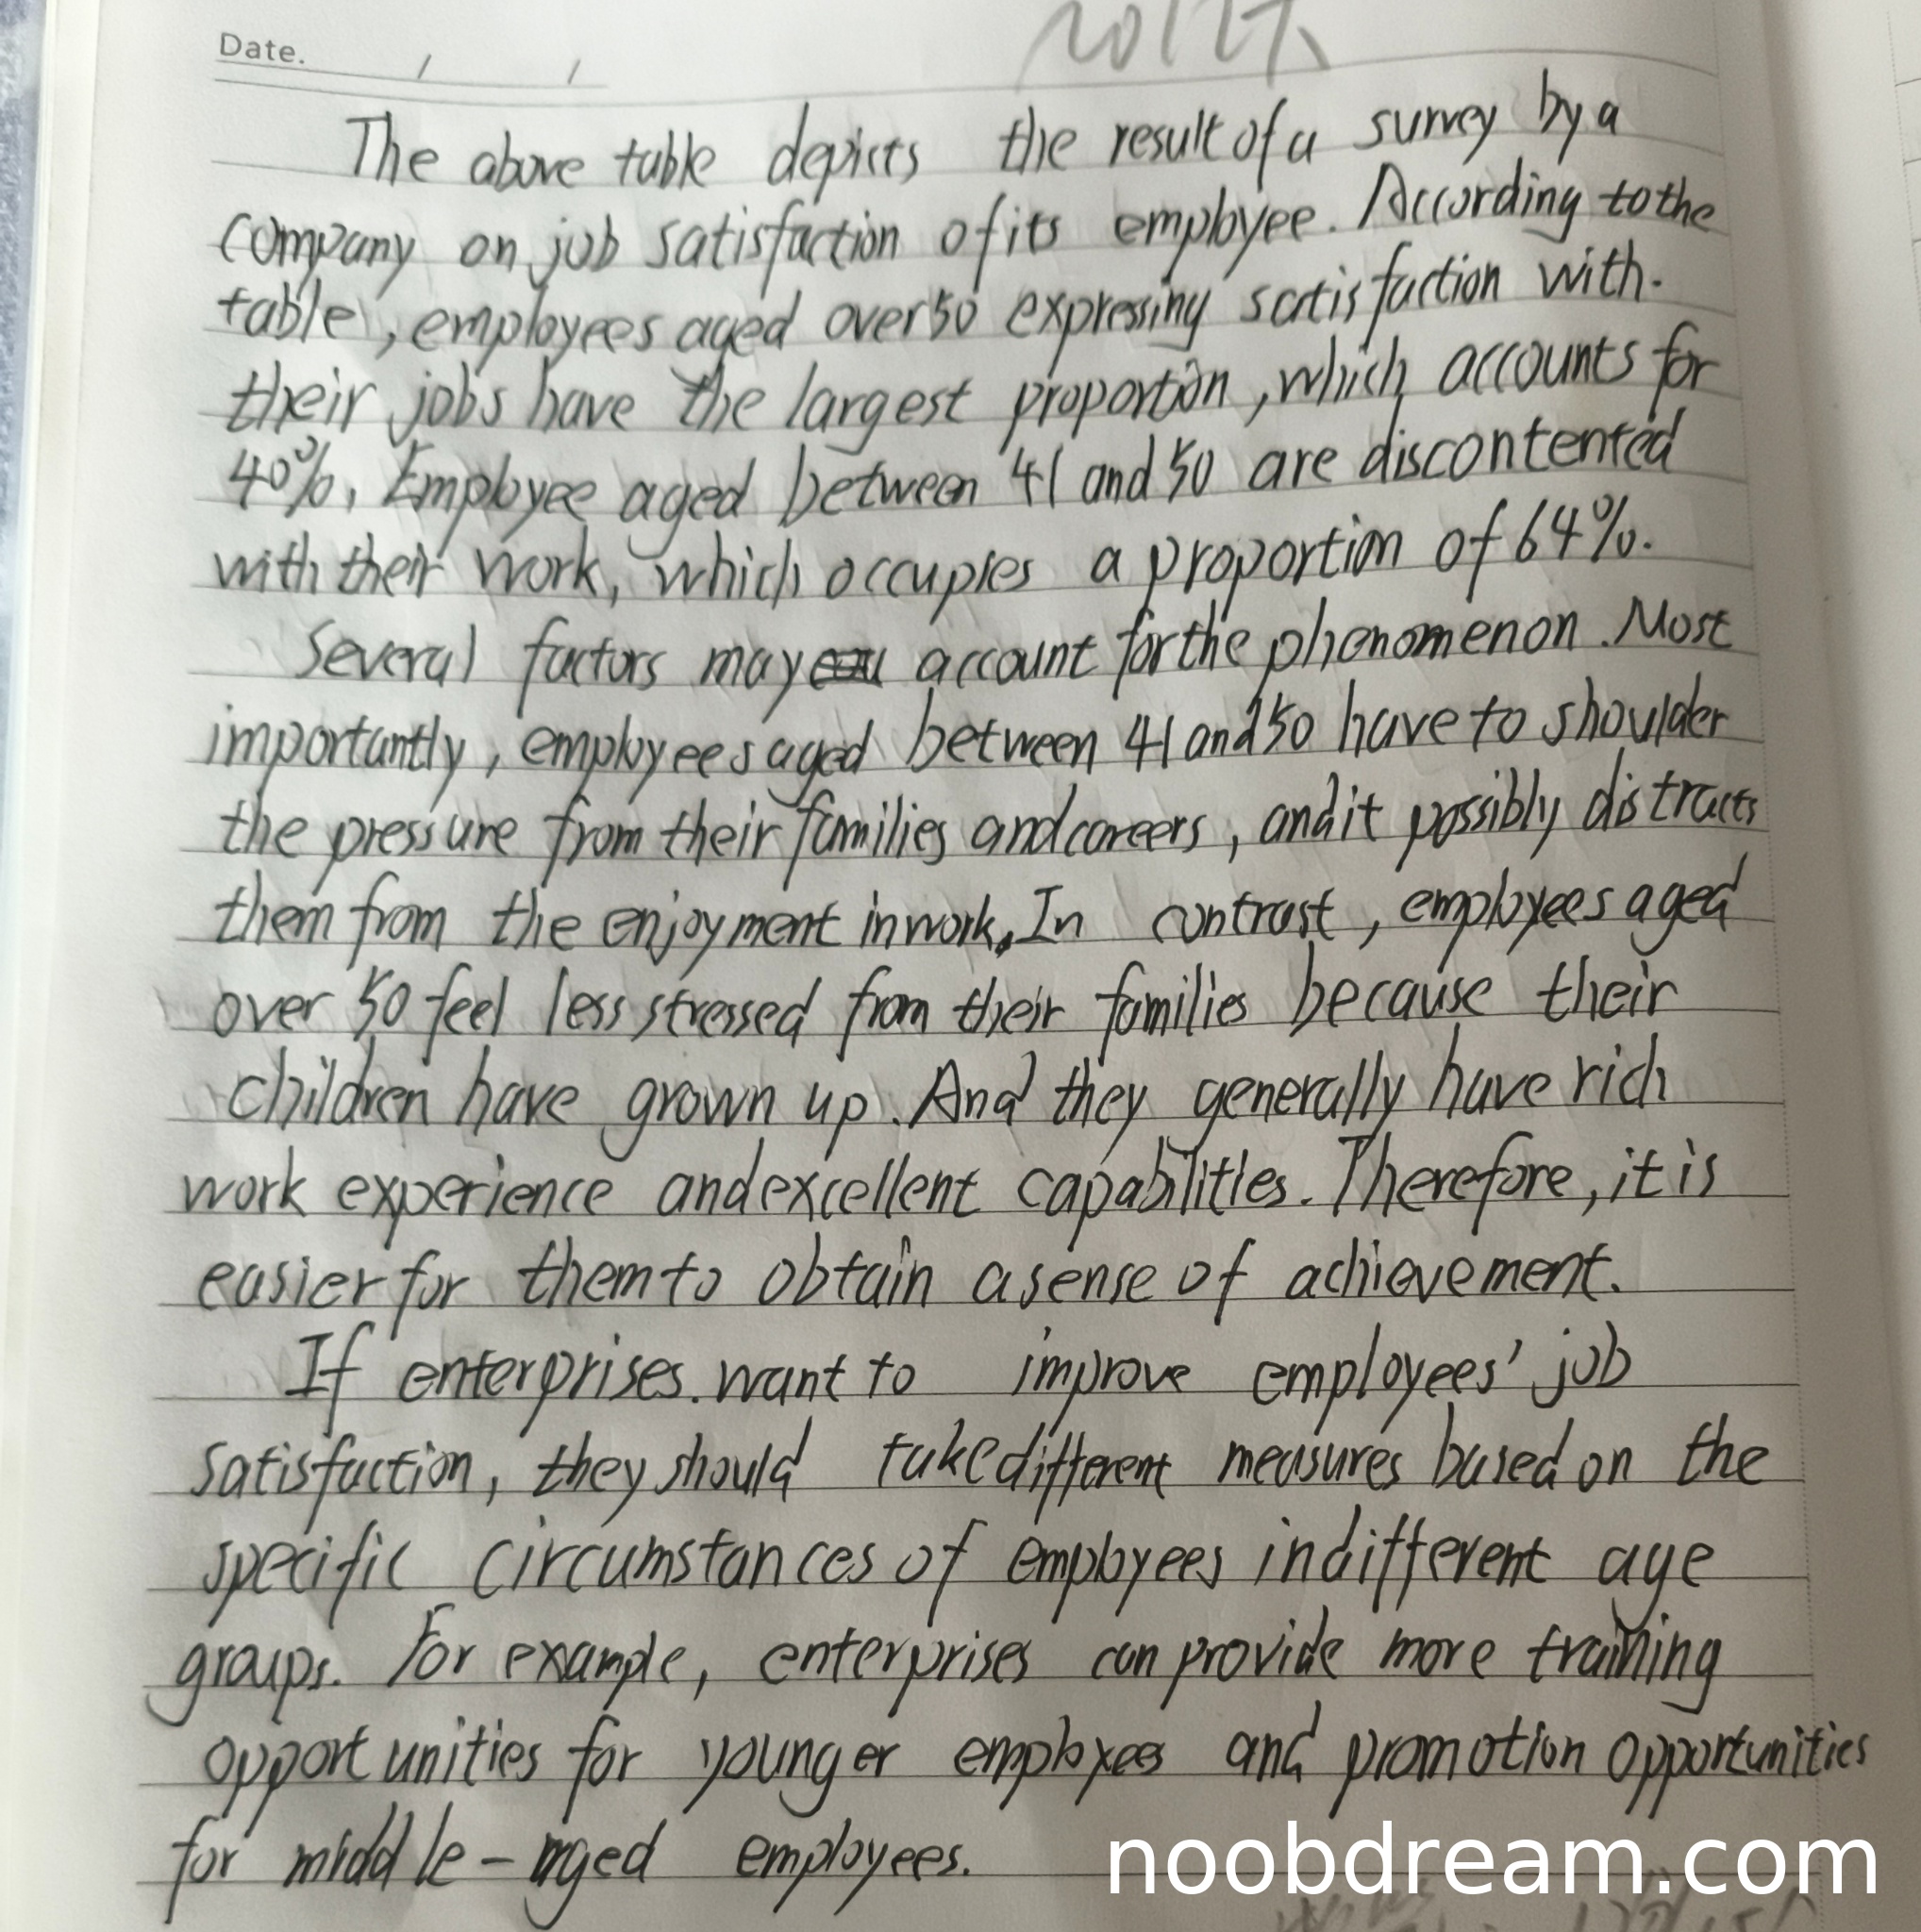 Date. / /
The above table depicts the result of a survey by a
company on job satisfaction of its employee. According to the
table, employees aged over 50 expressing satisfaction with
their jobs have the largest proportion, which accounts for
40%. Employee aged between 41 and 50 are discontented
with their work, which occupies a proportion of 64%.
Several factors may account for the phenomenon. Most
importantly, employees aged between 41 and 50 have to shoulder
the pressure from their families and careers, and it possibly distracts
them from the enjoyment in work. In contrast, employees aged
over 50 feel less stressed from their families because their
children have grown up. And they generally have rich
work experience and excellent capabilities. Therefore, it is
easier for them to obtain a sense of achievement.
If enterprises want to improve employees' job
satisfaction, they should take different measures based on the
specific circumstances of employees in different age
groups. For example, enterprises can provide more training
opportunities for younger employees and promotion opportunities
for middle-aged employees.
noobdream.com